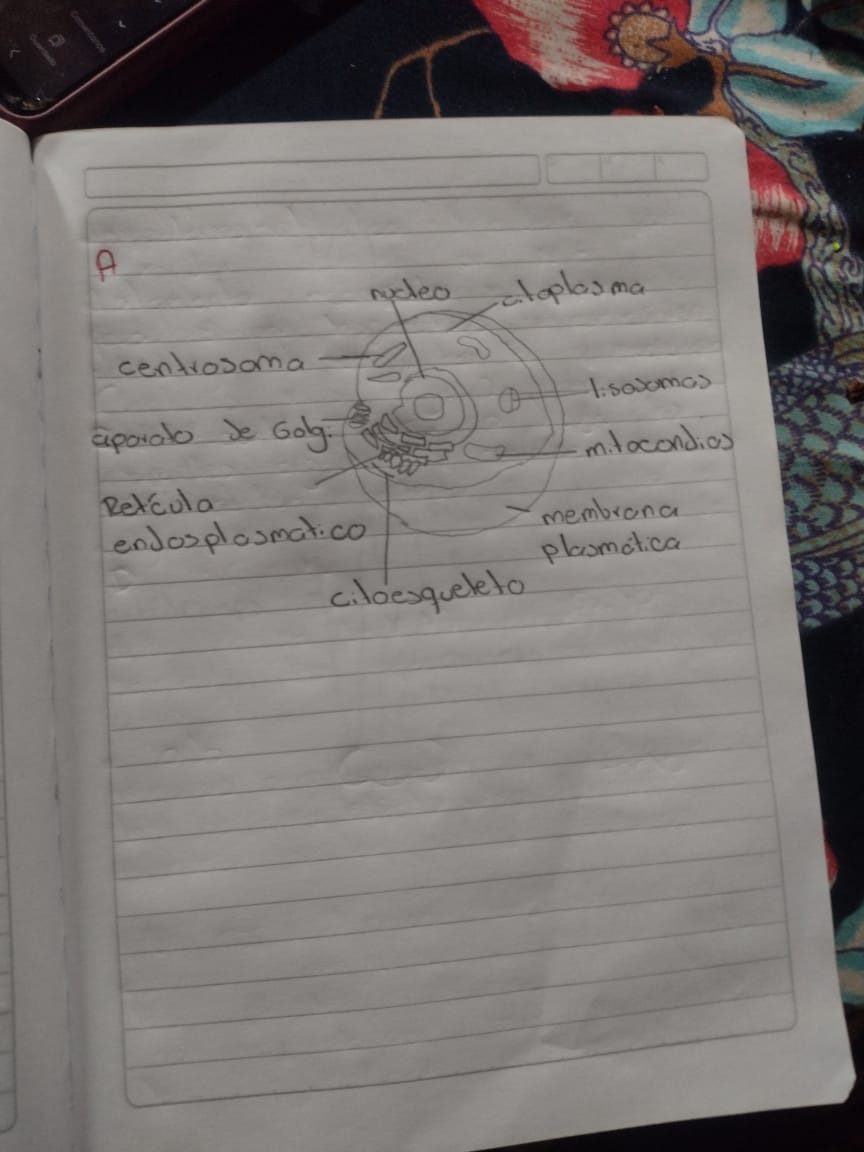 A
nucleo
citoplasma
centrosoma
lisosomas
aparato de Golgi
mitocondias
Retícula
endosplasmático
membrana
plasmática
citoesqueleto